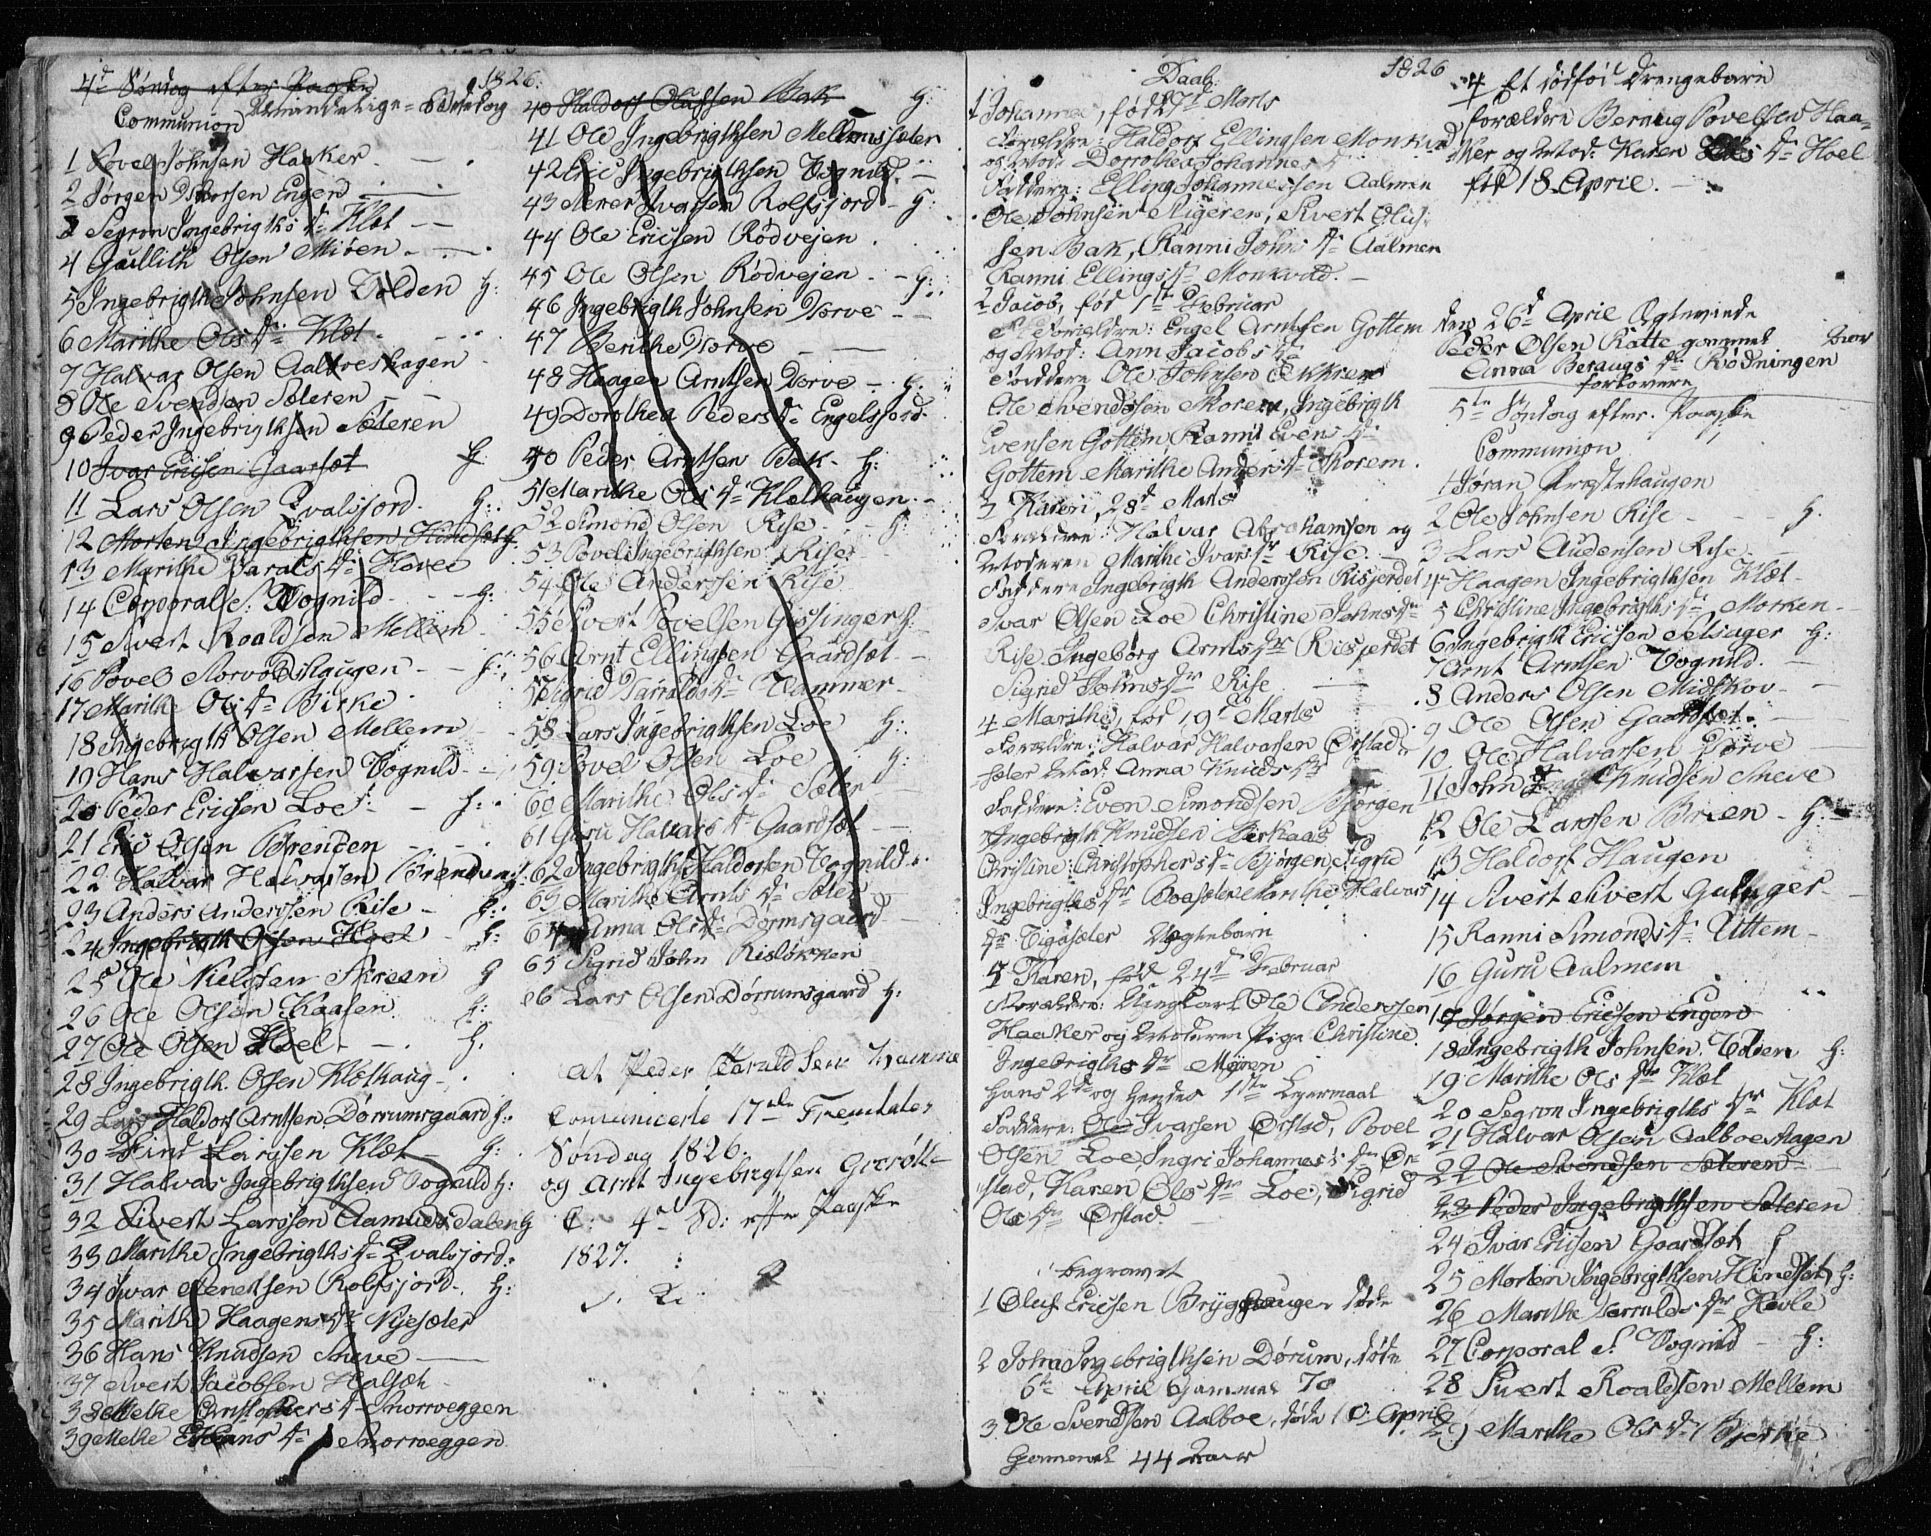 4de Søndag efter Paaske 1826.
Communion Almindelige Bededag
1 Povel Johnsen Haaker
2 Jørgen Engen
3 Segron Ingebrigths Dr Klæt
4 Gullith Olsen Miøen
5 Ingebrigth Johnsen Tolden H:
6 Marithe Ols Dr Klæt
7 Halvar Olsen Aalboeshagen
8 Ole Svendsen Sæteren
9 Peder Ingebrigthsen Sæteren
10 Ivar Ericsen Gaarsæt H:
11 Lars Olsen Qvalsjord H:
12 Morten Ingebrigthsen Hindsæt H:
13 Marithe Haralds Dr Hevle
14 Corporal S: Vognild H:
15 Sivert Roaldsen Mellem
16 Povel Haugen H:
17 Marithe Ols Dr Birke
18 Ingebrigth Olsen Mellem
19 Hans Halvarsen Vognild
20 Peder Ericsen Loe H:
21 Eric Olsen Brenden
22 Halvar Halvarsen Brenden H:
23 Anders Anderssen Rise H:
24 Ingebrigth Olsen Hoel H:
25 Ole Nielssen Skreen H
26 Ole Olsen Kaasen H:
27 Ole Olsen Hoel H.
28 Ingebrigth Olsen Klæthaug
29 Haldorf Arntsen Dørrumsgaard H:
30 Larssen Klæt H:
31 Halvar Ingebrigthsen Vognild H:
32 Sivert Larssen Aamundsdalen H
33 Marithe Ingebrigths Dr Qvalsjord
34 Ivar Sendsen Rolfsjord H:
35 Marith Haagens Dr Nyesæter
36 Hans Knudsen Sneve
37 Sivert Jacobsen Halsæt
38 Melke Christophers Dr Snorroeggen
39 Melke Dr Snorroeggen
40 Haldorf Olufsen Bak H:
41 Ole Ingebrigthsen Mellemsæter
42 Eric Ingebrigthsen Vognild
43 Ivarsen Rolfsjord H:
44 Ole Ericsen Rødvejen
45 Ole Olsen Rødvejen H:
46 Ingebrigth Johnsen Horve
47 Berithe Horve
48 Haagen Arntsen Horve H.
49 Dorothea Peders Dr Engelsjord
50 Peder Arntsen Bak H:
51 Marithe Ols Dr Klæthaugen
52 Simond Olsen Rise H:
53 Povel Ingebrigthsen Rise
54 Ole Anderssen Rise
55 Sivert Povelsen Gisinger H:
56 Arnt Ellingsen Gaardsæt
57 Sigrid Haralds Dr Hammer
58 Lars Ingebrigthsen Loe H:
59 Povel Olsen Loe H:
60 Marithe Ols Dr Sæter
61 Guru Halvars Dr Gaardsæt
62 Ingebrigth Haldorsen Vognild
63 Marithe Arnts Dr Sæter
64 Anna Ols Dr Dørmsgaard
65 Sigrid John Risløkken
66 Lars Olsen Dørrumsgaard H:
at Peder Haraldsen Hammer
Comunicerte 17de
Søndag 1826
og Arnt Ingebrigtsen
C: 4de Sd: efter Paaske
1827.
1826
Daab
1 Johannes, født 7d Marts
Forældre: Haldorf Ellingsen Monkvad
og Mod: Dorothea Johannes Dr
Faddere: Elling Johannessen Aalmen
Ole Johnsen Aigeren, Sivert Oluf-
sen Bak, Ranni Johns Dr Aalmen
Ranni Ellings Dr Monkvad.
2 Jacob, fød 1ste Februar
Forældre: Engel Arntsen Gottem
og Mod: Ann Jacobs Dr
Faddere Ole Johnsen Ekkren
Ole Svendssen Skorem, Ingebrigth
Evensen Gottem, Ranni Evens Dr
Gottem Marithe Anders Dr Skorem.
3 Karen, 28d Marts
Forældre: Halvar Abrahamsen og
Moderen Marithe Ivars Dr Rise
Faddere Ingebrigth Anderssen Risjerdet
Ivar Olsen Loe Christine Johns Dr
Rise, Ingeborg Arnts Dr Risjerdet
Sigrid Johns Dr Rise
4 Marithe, fød 19d Marts
Forældre: Halvar Halvarsen Ørstad
sæter Mod: Anna Knuds Dr
Faddere: Even Simondsen Bjørgen
Ingebrigth Knudsen Birkaas
Christine Christophers Dr Bjørgen Sigrid
Ingebrigths Dr Marithe Halvars
Dr Uægtebarn
5 Karen, fød 24d Februar
Forældre: Ungkarl Ole Anderssen
Haaker og Moderen Pige Christine
Ingebrigths Dr Mjøen
hans 2det og hendes 1ste Leiermaal
Faddere: Ole Ivarsen Ørstad, Povel
Olsen Loe, Ingri Johannes Dr Ør-
stad, Karen Ols Dr Loe, Sigrid
Ols Dr Ørstad
begravet
1 Oluf Ericsen Bryghaugen døde
2 John Ingebrigthsen Dørum, døde
6te April Gammel 70
3 Ole Svendsen Aalboe, døde 10 April
Gammel 44 Aar
4 Et dødfød Drengebarn
Forældre Beraug Povelsen Haa-
ker og Mod: Karen Dr Hoel
fød 18 April.
den 26d April Ægteviede
Peder Olsen Ratte gammel
Anna Beraugs Dr Rødningen
forlovere
5te Søndag efter Paaske
Communion
1 Jøran Præstehaugen
2 Ole Johnsen Rise H.
3 Lars Audensen Rise
4 Haagen Ingebrigthsen Klæt
5 Christine Ingebrigths Dr Morken
6 Ingebrigth Ericsen Selsager H:
7 Arnt Arntsen Vognild
8 Anders Olsen Midskov
9 Ole Olsen Gaardsæt
10 Ole Halvarsen Horve
11 John Knudsen Sneve
12 Ole Larssen Bruen H:
13 Haldorf Haugen
14 Sivert Sivert Gulager
15 Ranni Simonds Dr Uttem
16 Guru Aalmen
17 Jørgen Ericsen Engen
18 Ingebrigth Johnsen Tolden H:
19 Marithe Ols Dr Klæt
20 Segron Ingebrigths Dr Klæt
21 Halvar Olsen Aalboeshagen
22 Ole Svendsen Sæteren
23 Peder Ingebrigthsen Sæteren
24 Ivar Ericsen Gaardsæt H
25 Morten Ingebrigthsen Hindsæt H:
26 Marithe Haralds Dr Hevle
27 Corporal S. Vognild H:
28 Sivert Roaldsen Mellem
29 Marithe Ols Dr Bjerke